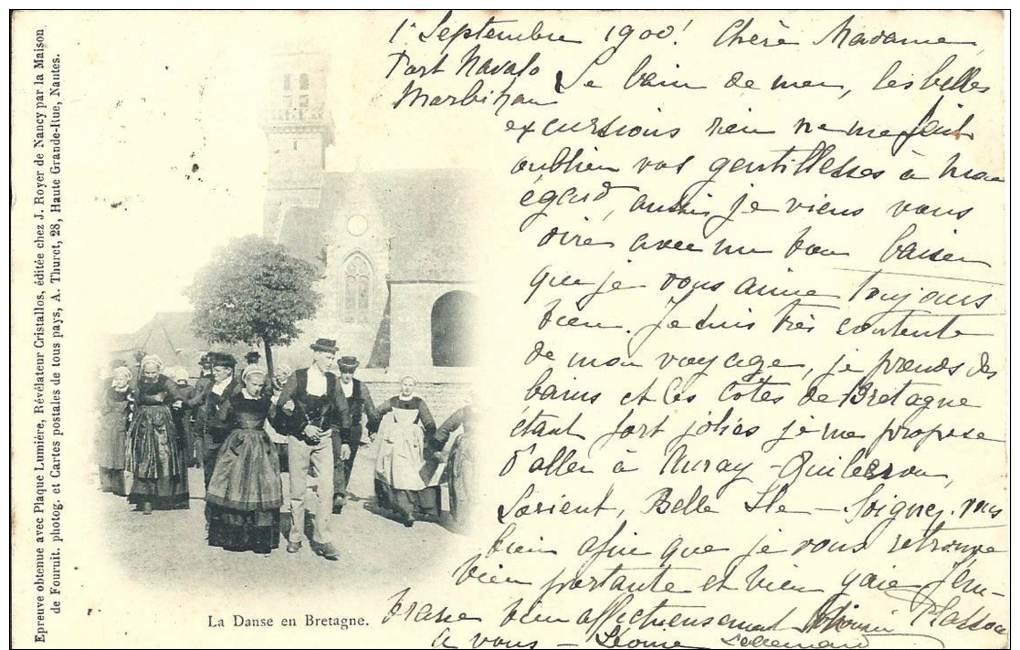 Epreuve obtenue avec Plaque Lumière, Révélateur Cristallos, éditée chez J. Royer de Nancy par la Maison
de Fournit. photog. et Cartes postales de tous pays, A. Thuret, 28, Haute Grande-Rue, Nantes.
1r Septembre 1900! Chère Madame
Port Navalo
Morbihan
Le bain de mer, les belles
excursions rien ne me font
oublier vos gentillesses à mon
égard, aussi je viens vous
dire avec un bon baiser
que je vous aime toujours
bien. Je suis très contente
de mon voyage, je prends des
bains et les côtes de Bretagne
étant fort jolies je me propose
d'aller à Auray - Quiberon,
Lorient, Belle Ile - Soignez vous
bien afin que je vous retrouve
bien portante et bien gaie J'em-
brasse bien affectueusement
à vous - Léonie
La Danse en Bretagne.